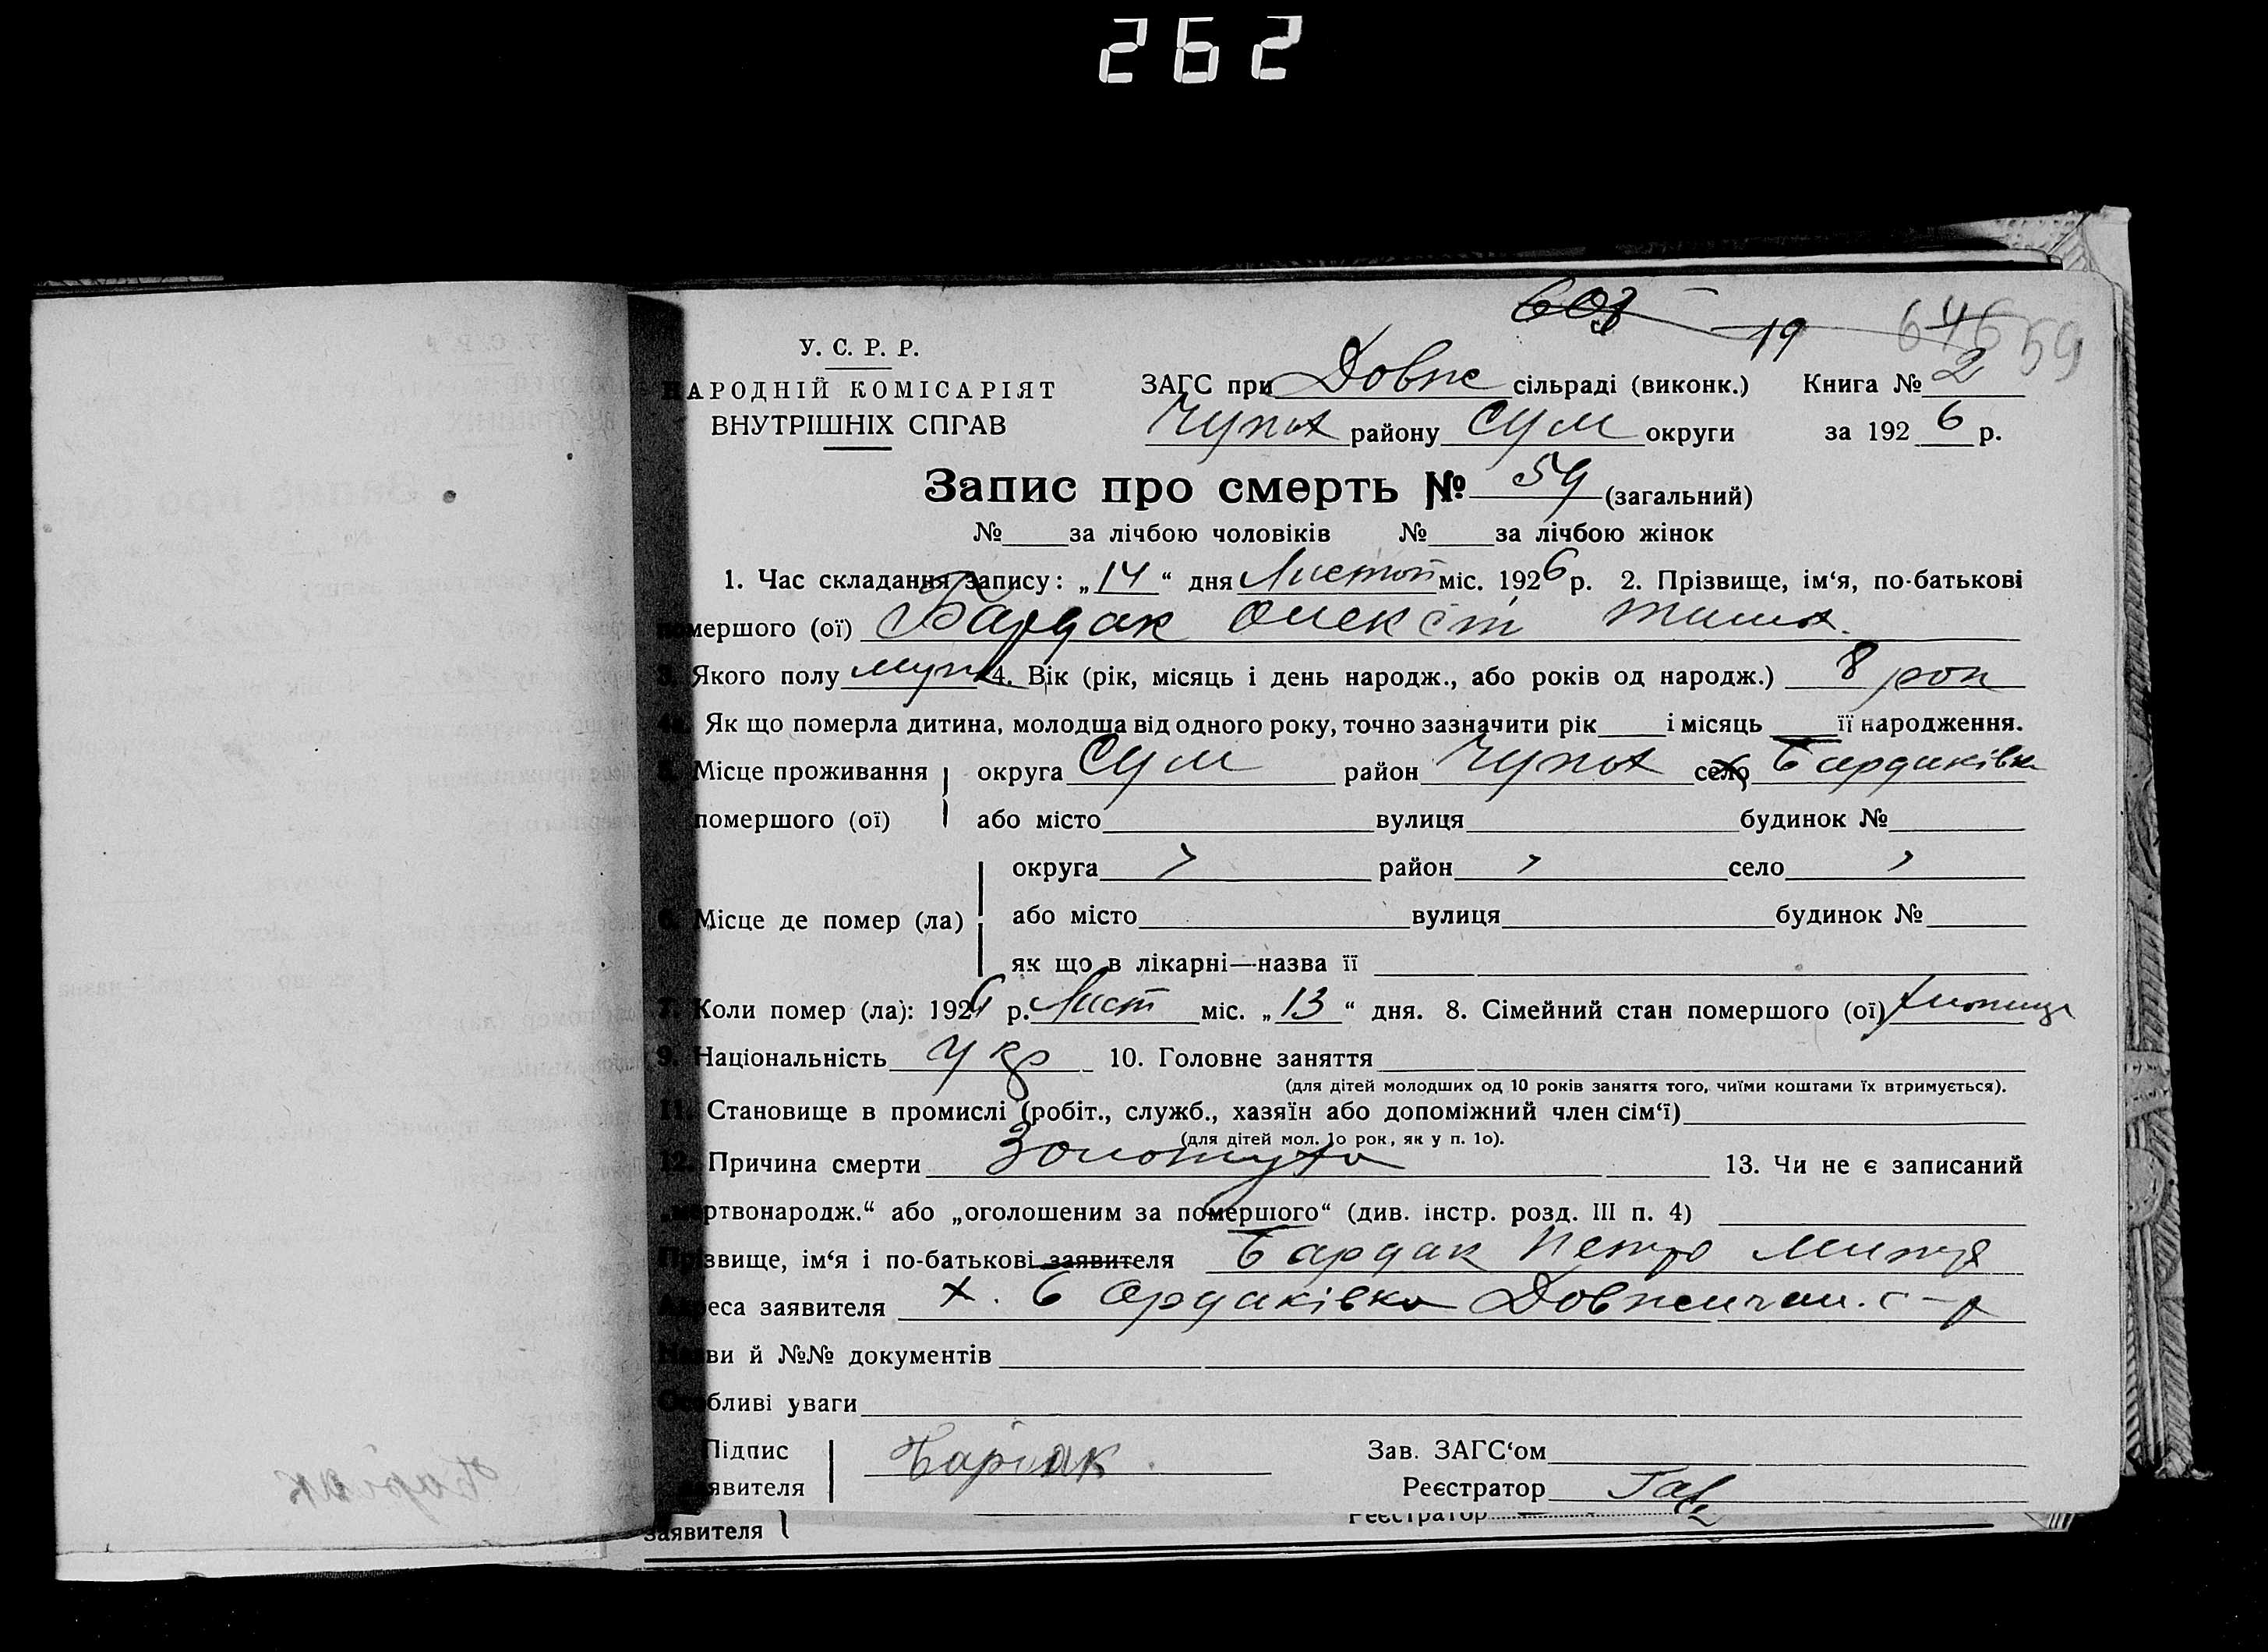 262
19
646 59
У. С. Р. Р.
НАРОДНІЙ КОМІСАРІЯТ
ВНУТРІШНІХ СПРАВ
ЗАГС при Довж сільраді (виконк.) Книга № 2
району Сум округи за 1926 р.
Запис про смерть № 59 (загальний)
№ за лічбою чоловіків № за лічбою жінок
1. Час складання запису: „14“ дня Листоп міс. 1926 р. 2. Прізвище, ім‘я, по-батькові
помершого (ої) Бардак Олексій
3. Якого полу муж 4. Вік (рік, місяць і день народж., або років од народж.) 8 рок
4а. Як що померла дитина, молодша від одного року, точно зазначити рік і місяць її народження.
5. Місце проживання округа Сум район село Бардаківка
помершого (ої) або місто вулиця будинок №
округа район село
6. Місце де помер (ла) або місто вулиця будинок №
як що в лікарні—назва її
7. Коли помер (ла): 1926 р. Лист міс. „13“ дня. 8. Сімейний стан помершого (ої)
9. Національність Укр 10. Головне заняття
(для дітей молодших од 10 років заняття того, чиїми коштами їх втримується).
11. Становище в промислі (робіт., служб., хазяїн або допоміжний член сім‘ї)
(для дітей мол. 1о рок, як у п. 1о).
12. Причина смерти Золотуха 13. Чи не є записаний
„мертвонародж.“ або „оголошеним за помершого“ (див. інстр. розд. III п. 4)
Прізвище, ім‘я і по-батькові заявителя Бардак Петро
Адреса заявителя х. Бардаківка Довженчан. с-р
Назви й №№ документів
Особливі уваги
Підпис Бардак Зав. ЗАГС‘ом
заявителя Реєстратор
заявителя Реєстратор